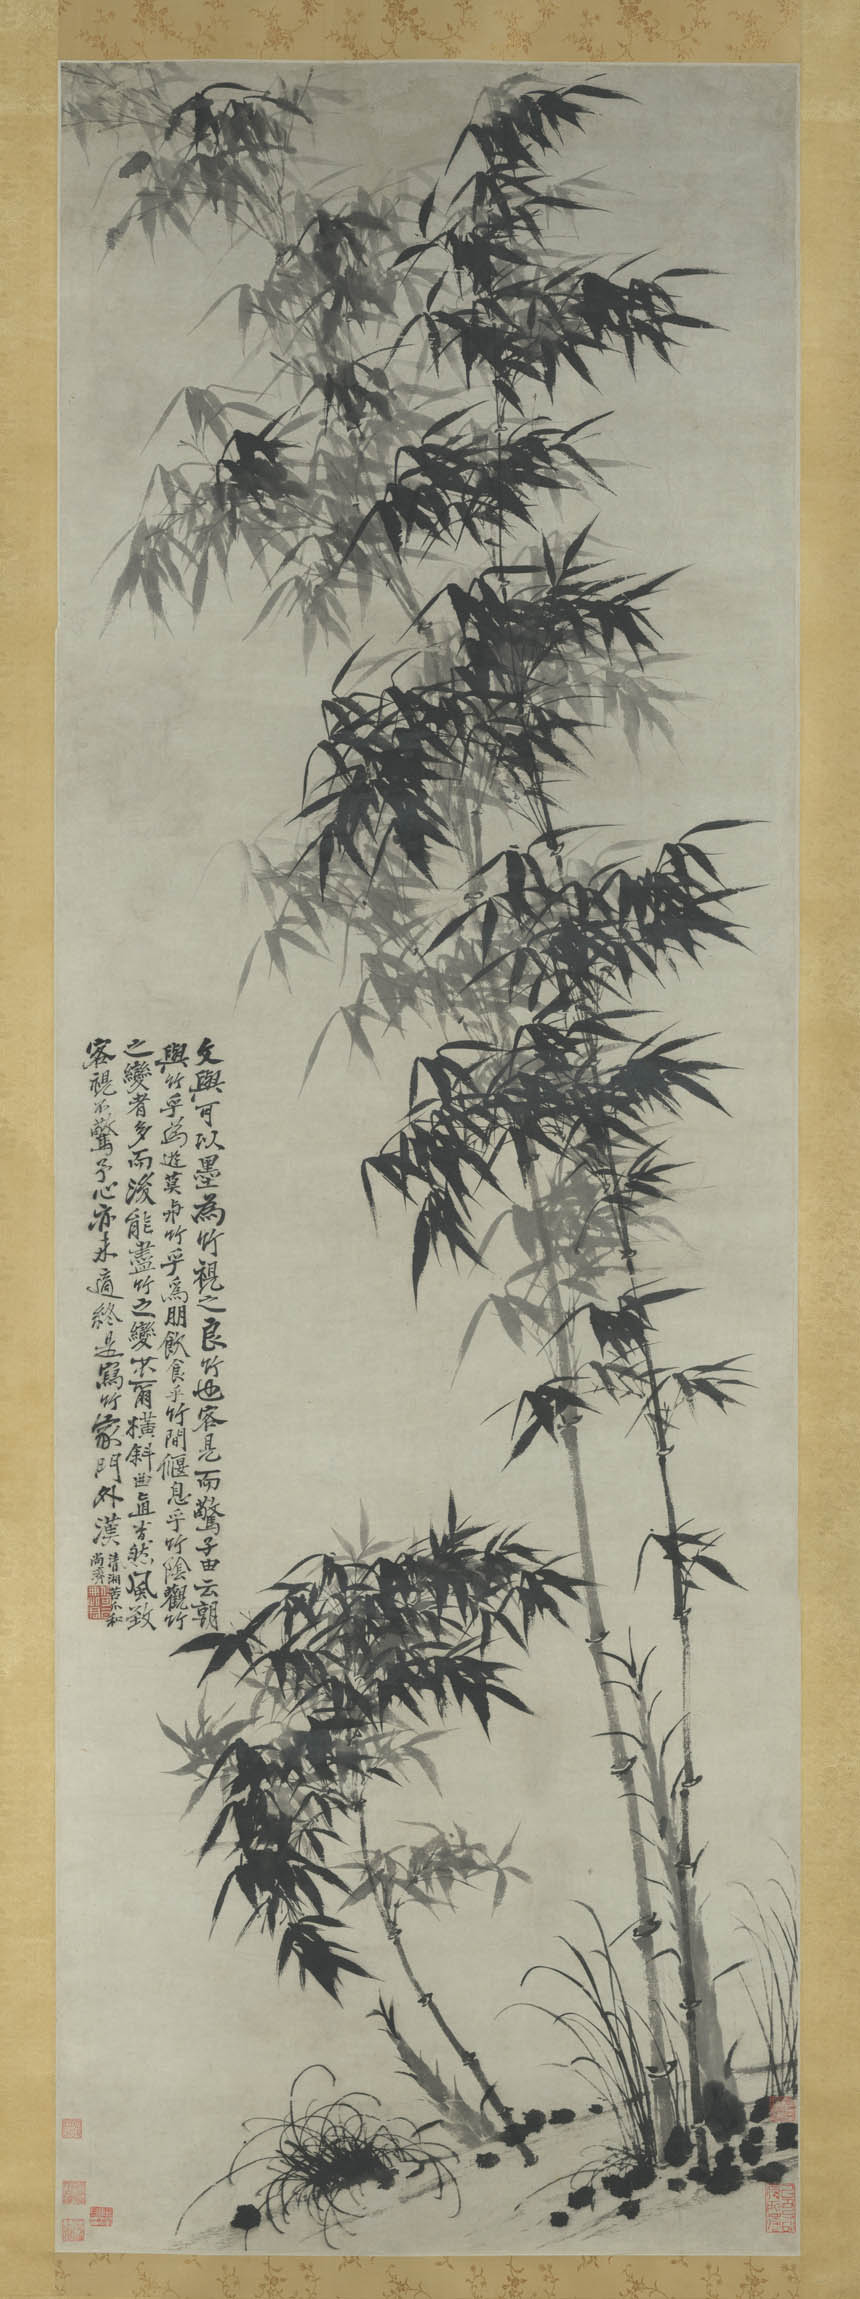 文與可以墨為竹視之良竹也客見而驚子由云朝
與竹乎為遊莫與竹乎為朋飲食乎竹間偃息乎竹陰觀竹
之變者多而後能盡竹之變出爾橫斜曲直有然風致
客視不驚予心亦未適終是寫竹家門外漢
清湘苦瓜和
尚濟